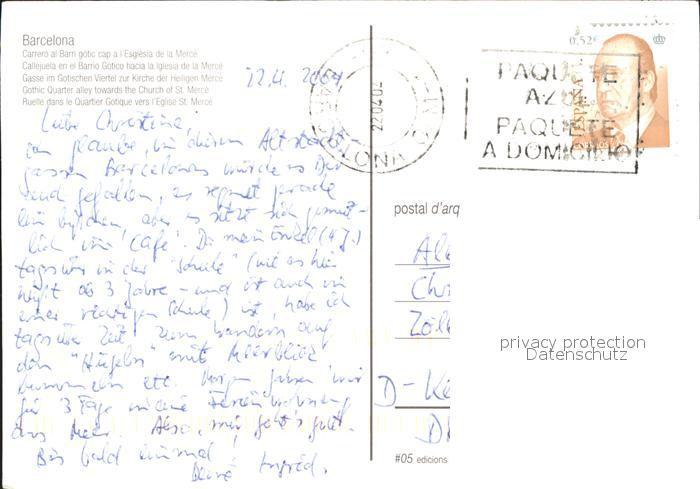 Barcelona
Carreró al Barri gòtic cap a l'Església de la Mercè
Callejuela en el Barrio Gótico hacia la Iglesia de la Mercè
Gasse im Gotischen Viertel zur Kirche der Heiligen Mercè
Gothic Quarter alley towards the Church of St. Mercè
Ruelle dans le Quartier Gotique vers l'Eglise St. Mercè
22.4. 2004
Liebe Christine,
ich glaube, in diesen Altstadt-
gassen Barcelonas würde es Dir
gefallen, es regnet gerade
ein bißchen, aber es sitzt sich gemüt-
lich im "Café". Da mein Enkel (4 J.)
tagsüber in der "Schule" (wie es hier
heißt ab 3 Jahre - und ist auch in
einer richtigen Schule) ist, habe ich
tagsüber Zeit zum Wandern auf
den "Hügeln" mit Meerblick
bummeln etc. Morgen fahren wir
für 3 Tage in eine Ferienwohnung
ans Meer. Also, mir geht's gut.
Bis bald einmal!
Deine Ingrid.
0,52€
ESPAÑA
22 04 04
PAQUETE
AZUL
PAQUETE
A DOMICILIO
postal d'arq
Zol
D-Ke
D
privacy protection
Datenschutz
#05 edicions